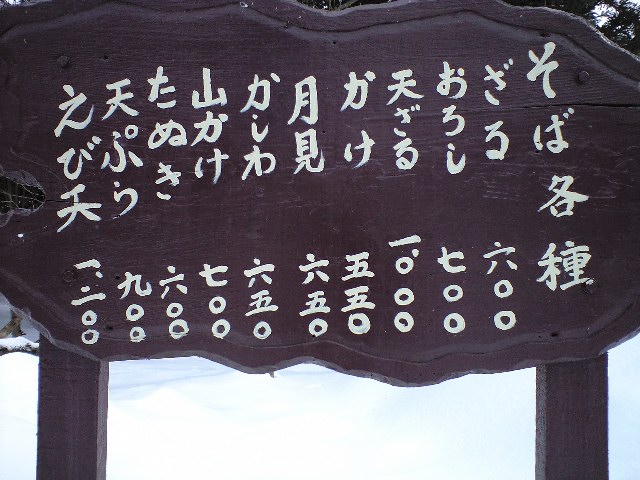 そば各種
ざる 六〇〇
おろし 七〇〇
天ざる 一、〇〇〇
かけ 五五〇
月見 六五〇
かしわ 六五〇
山かけ 七〇〇
たぬき 六〇〇
天ぷら 九〇〇
えび天 一、二〇〇